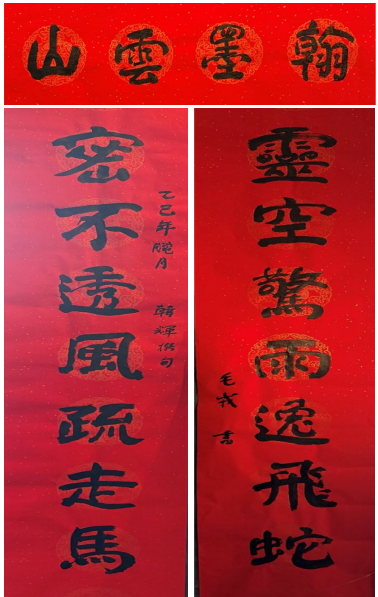 翰墨雲山
靈空驚雨逸飛蛇
毛戎書
密不透風疏走馬
乙巳年月
韓輝句